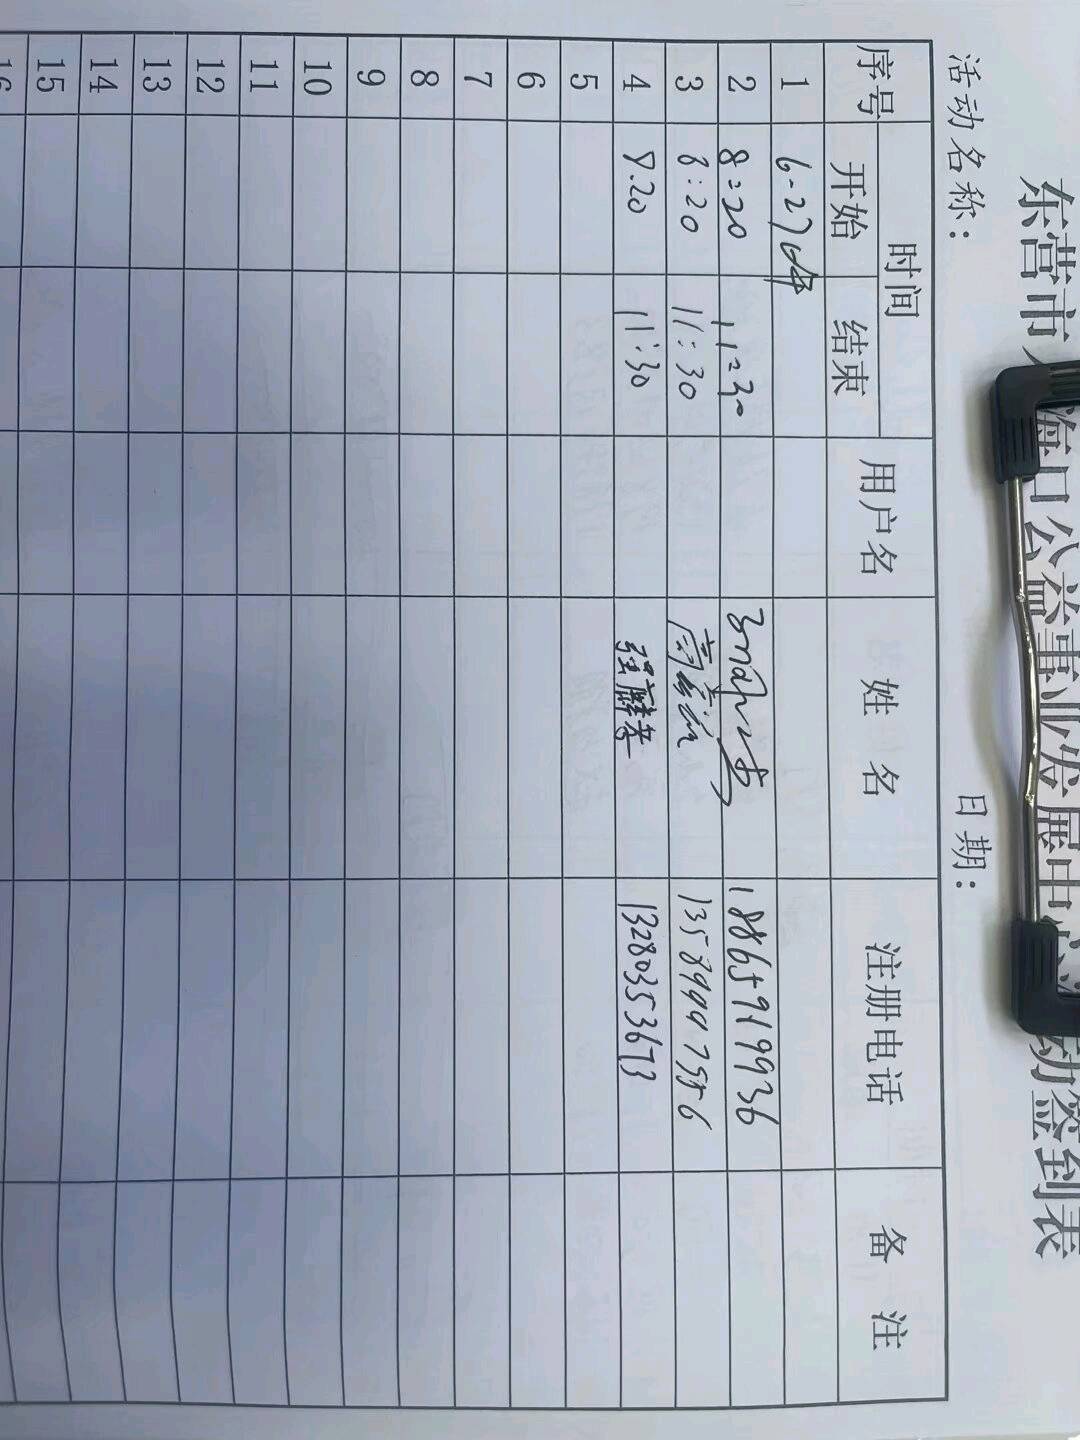 东营市 海口公益事业发展中心 动签到表
活动名称： 日期：
序号 时间 用户名 姓名 注册电话 备注
开始 结束
1 6-27
2 8:20 11:30 18865919936
3 8:20 11:30 13589997556
4 8.20 11:30 13280353673
5
6
7
8
9
10
11
12
13
14
15
16